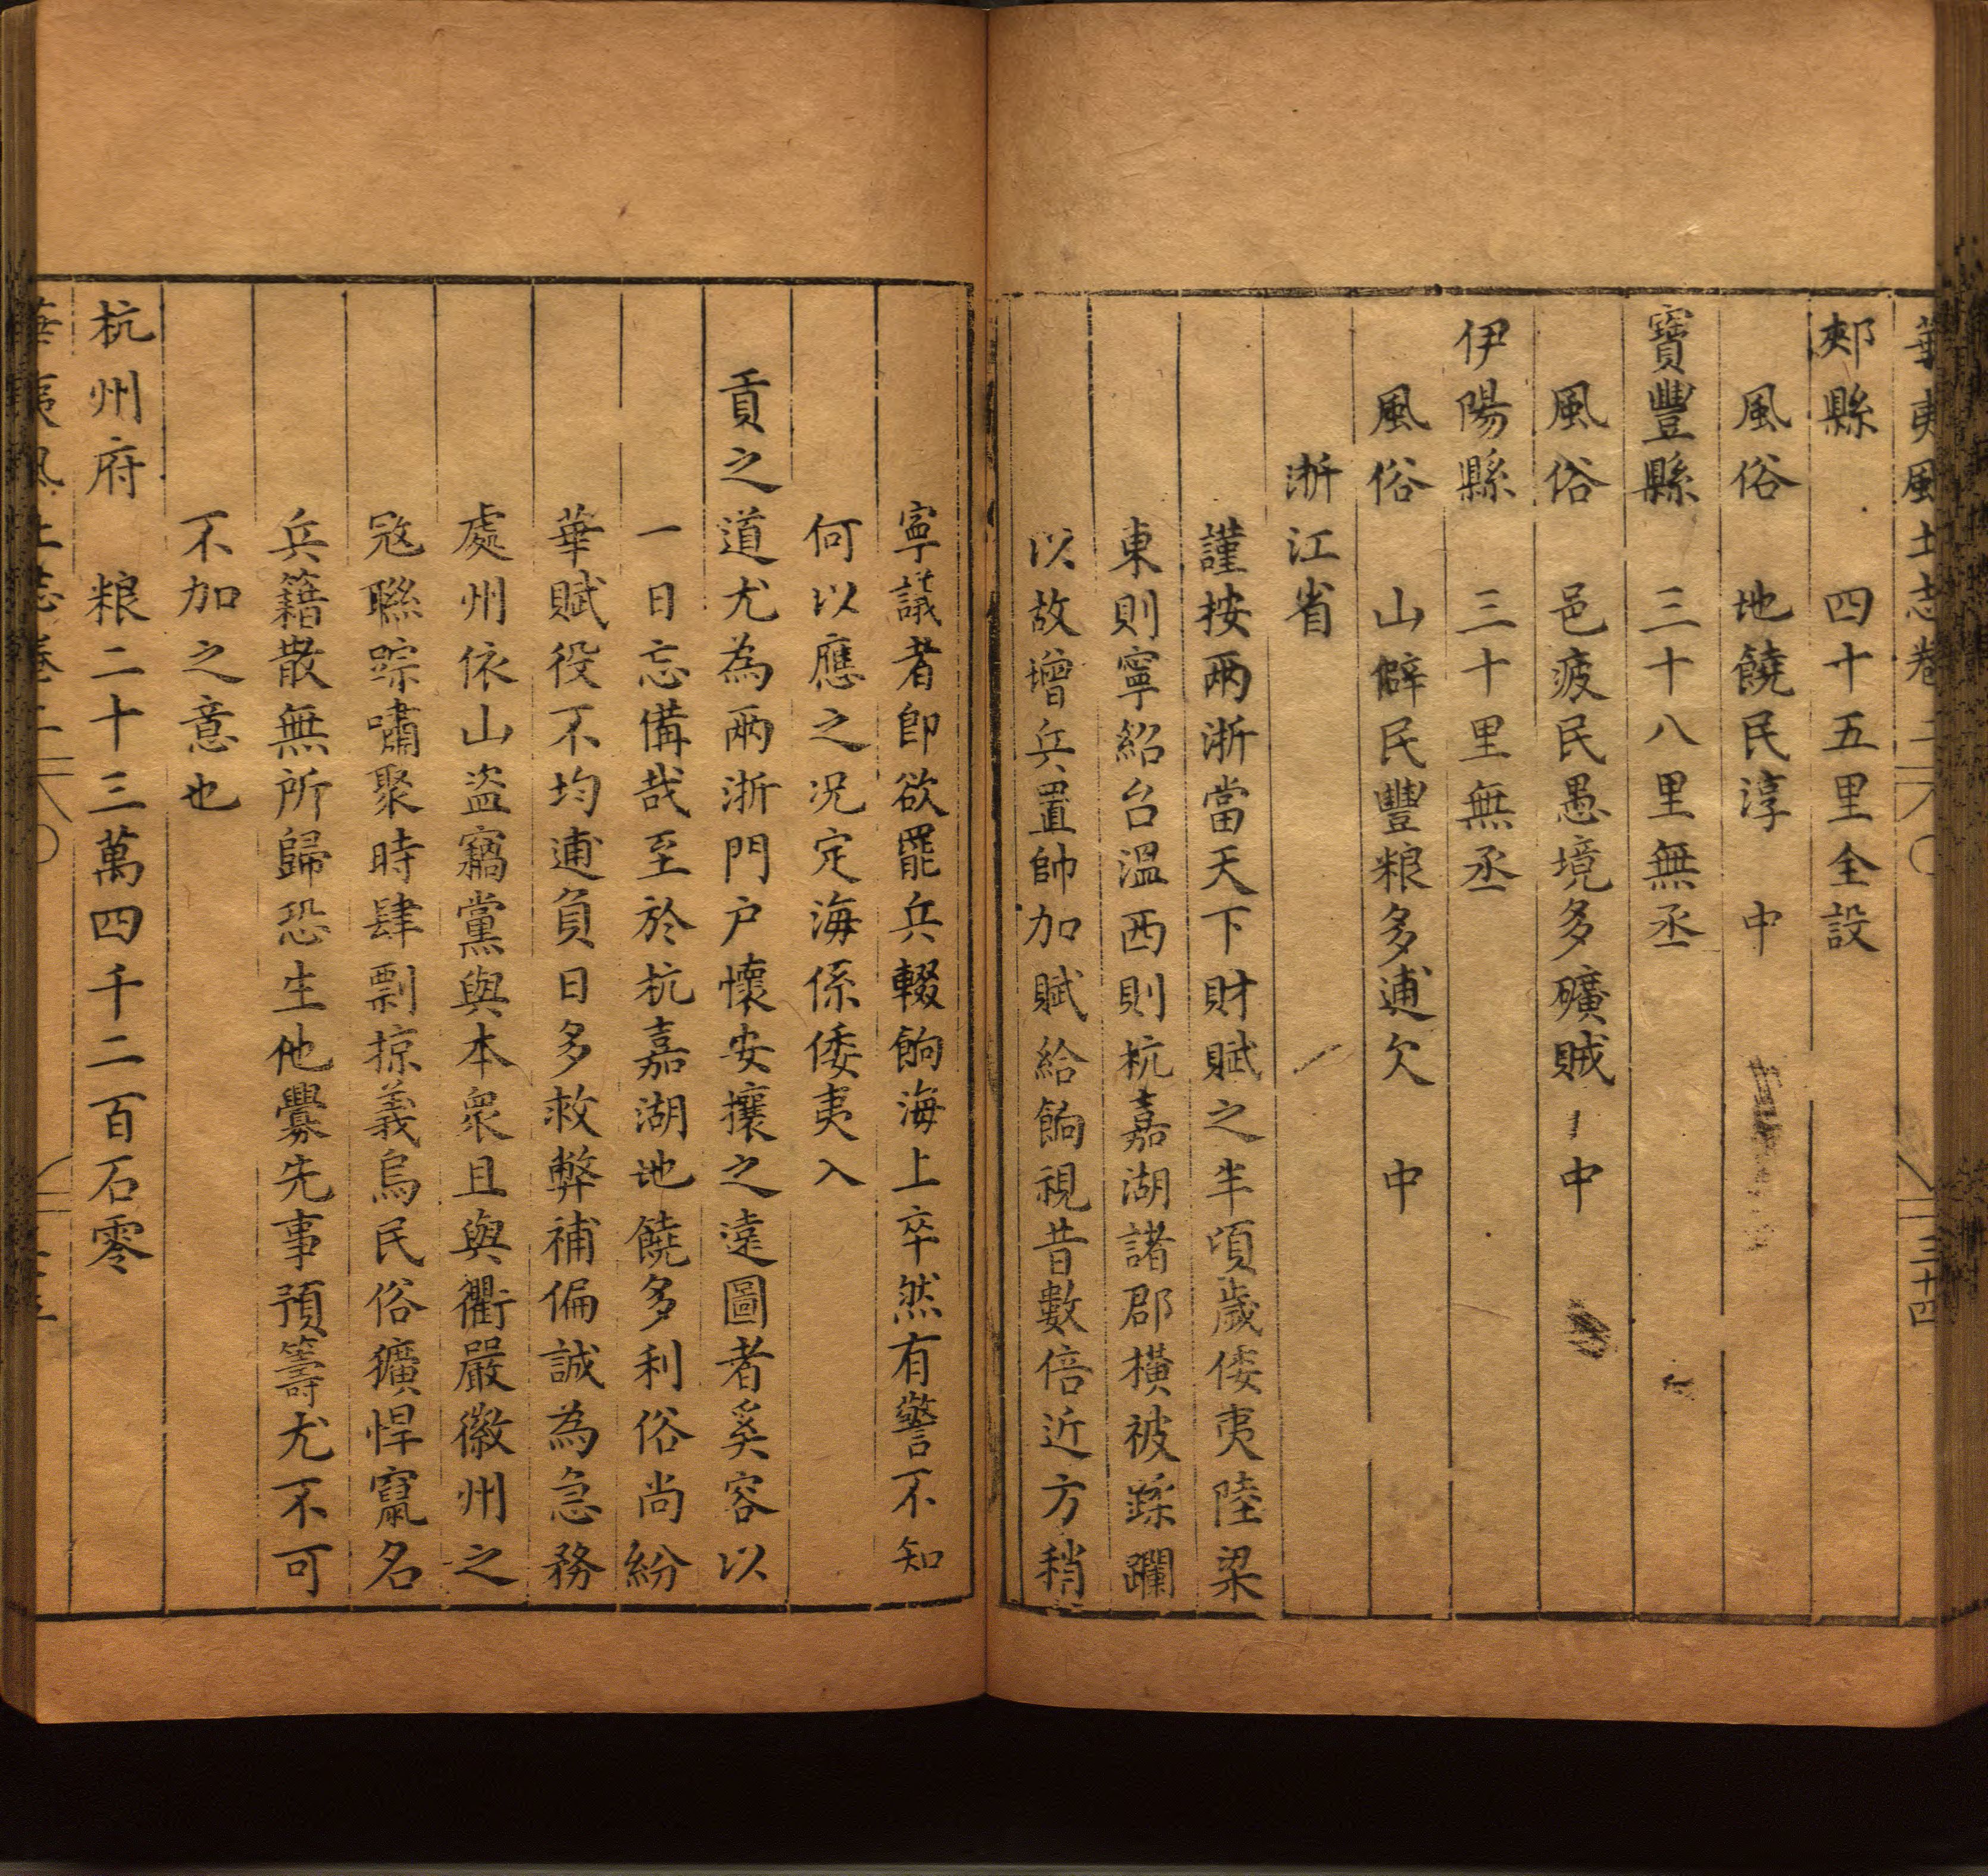 華夷風土志卷二 三十四
郟縣 四十五里全設
風俗 地饒民淳 中
寶豐縣 三十八里無丞
風俗 邑疲民愚境多礦賊 中
伊陽縣 三十里無丞
風俗 山僻民豐粮多逋欠 中
浙江省
謹按兩浙當天下財賦之半頃歲倭夷陸梁
東則寧紹台溫西則杭嘉湖諸郡橫被蹂躪
以故增兵置帥加賦給餉視昔數倍近方稍
寧議者即欲罷兵輟餉海上卒然有警不知
何以應之况定海係倭夷入
貢之道尤為兩浙門户懷安攘之遠圖者奚容以
一日忘備哉至於杭嘉湖地饒多利俗尚紛
華賦役不均逋負日多救弊補偏誠為急務
處州依山盜竊黨與本衆且與衢嚴徽州之
冦聯踪嘯聚時肆剽掠義烏民俗獷悍竄名
兵籍散無所歸恐生他釁先事預籌尤不可
不加之意也
杭州府 粮二十三萬四千二百石零
華夷風土志卷二